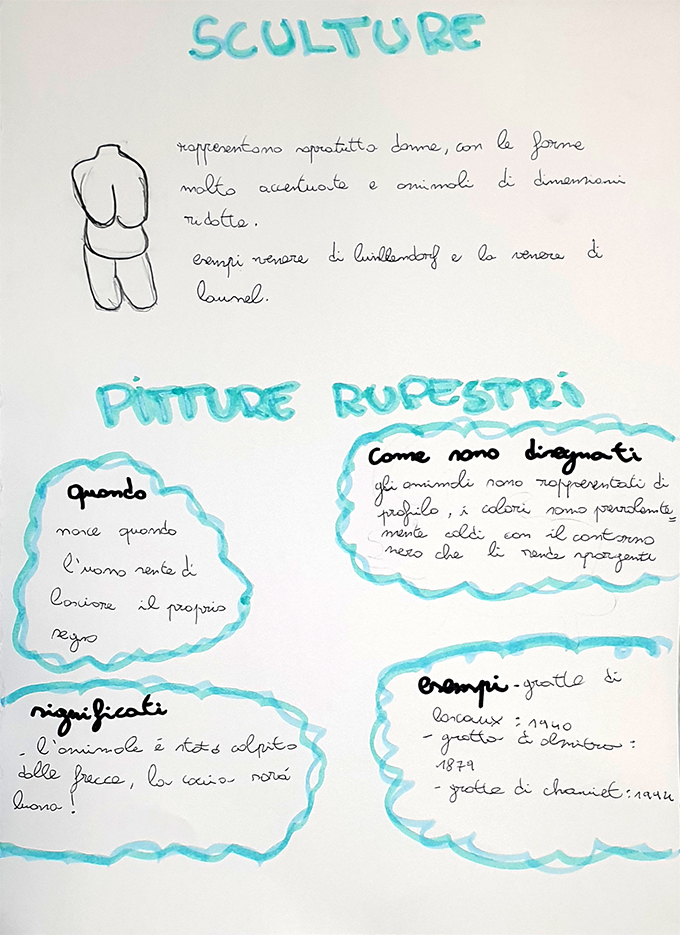 SCULTURE
rappresentano sopratutto donne, con le forme
molto accentuate e animali di dimensioni
ridotte.
esempi venere di luillendorf e la venere di
launel.
PITTURE RUPESTRI
quando
nasce quando
l'uomo sente di
lasciare il proprio
segno
come sono disegnati
gli animali sono rappresentati di
profilo, i colori sono prevalente=
mente caldi con il contorno
nero che li rende sporgenti
significati
- l'animale é stato colpito
dalle frecce, la caccia sarà
buona!
esempi - grotte di
lascaux : 1940
- grotta di altmitra :
1879
- grotte di chaniet : 1994